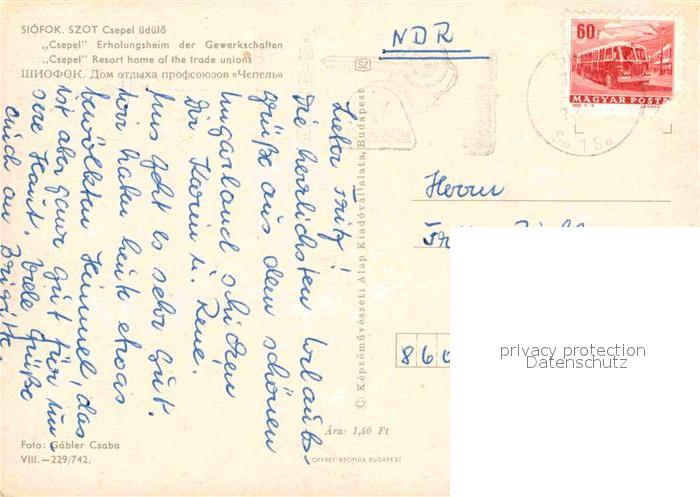 SIÓFOK. SZOT Csepel üdülő
„Csepel" Erholungsheim der Gewerkschaften
„Csepel" Resort home of the trade unions
ШИОФОК. Дом отдыха профсоюзов «Чепель»
NDR
60f
MAGYAR POSTA
SZ
Lieber Fritz!
Die herrlichsten Urlaubs-
grüße aus dem schönen
Ungarland schicken
Dir Karin u. René.
Uns geht es sehr gut.
Wir haben heute etwas
bewölkten Himmel, das
ist aber ganz gut für un-
sere Haut. Viele Grüße
auch an Brigitte.
© Képzőművészeti Alap Kiadóvállalata, Budapest
Herrn
860
privacy protection
Datenschutz
Ára: 1,50 Ft
Foto: Gábler Csaba
VIII.—229/742.
OFFSET-NYOMDA BUDAPEST